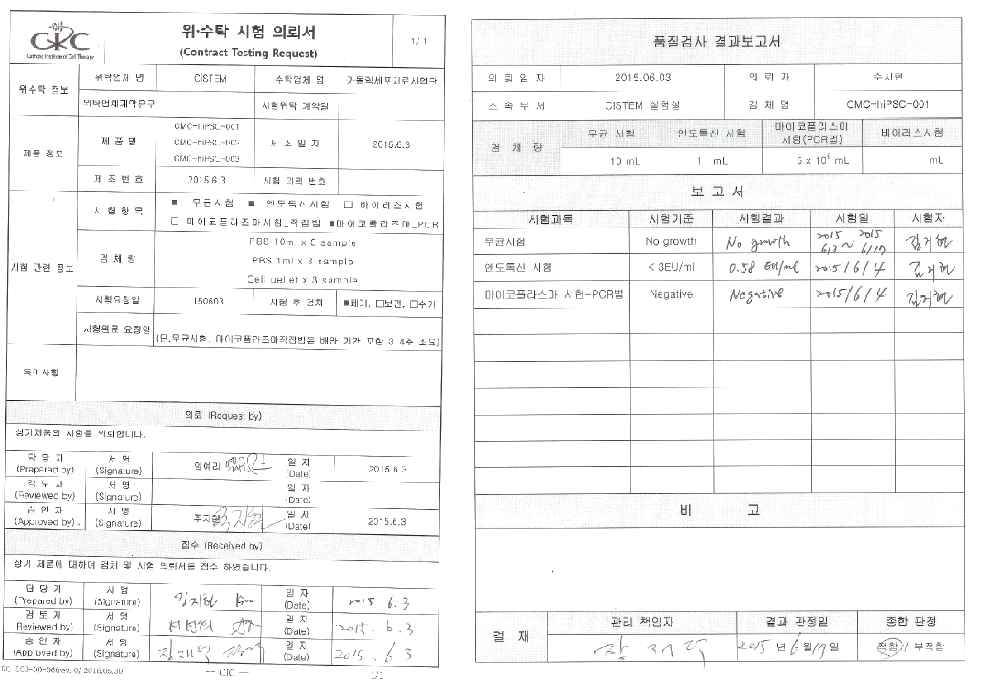 위·수탁 시험 의뢰서
(Contract Testing Request)
1/1
CIC
Catholic Institute of Cell Therapy
위수탁 정보
위탁업체 명
CISTEM
수탁업체 명
시험위탁 계약일
제품 정보
제 품 명
CMC-hiPSC-001
CMC-hiPSC-002
CMC-hiPSC-003
제 조 일 자
2015.6.3
제 조 번 호
2015.6.3
시험 의뢰 번호
시험 관련 정보
시험항목
■ 무균시험 ■ 엔도톡신시험 □ 바이러스시험
□ 마이코플라즈마시험_직접법 ■마이코플라즈마_PCR
검 체 량
PBS 10ml x 3 sample
PBS 1ml x 3 sample
Cell pellet x 3 sample
시험요청일
150603
시험 후 검체
■폐기, □보관, □수거
시험완료 요청일
(단,무균시험, 마이코플라즈마직접법은 배양 기간 포함 3-4주 소요)
특이사항
의뢰 (Request by)
상기제품의 시험을 의뢰합니다.
담 당 자
(Prepared by)
서 명
(Signature)
일 자
(Date)
2015.6.3
검 토 자
(Reviewed by)
서 명
(Signature)
일 자
(Date)
승 인 자
(Approved by)
서 명
(Signature)
일 자
(Date)
2015.6.3
접수 (Received by)
상기 제품에 대하여 검체 및 시험 의뢰서를 접수 하였습니다.
담 당 자
(Prepared by)
서 명
(Signature)
일 자
(Date)
2015 6.3
검 토 자
(Reviewed by)
서 명
(Signature)
일 자
(Date)
2015. 6.3
승 인 자
(Approved by)
서 명
(Signature)
일 자
(Date)
2015. 6 3
— CIC —
품질검사 결과보고서
의 뢰 일 자
2015.06.03
의 뢰 자
소 속 부 서
CISTEM 실험실
검 체 명
CMC-hiPSC-001
검 체 량
무균 시험
엔도톡신 시험
마이코플라스마
시험(PCR법)
바이러스시험
10 mL
1 mL
mL
보 고 서
시험과목
시험기준
시험결과
시험일
시험자
무균시험
No growth
No growth
2015 2015
엔도톡신 시험
< 3EU/ml
0.58 EU/ml
2015/6/4
마이코플라스마 시험-PCR법
Negative
Negative
2015/6/4
비 고
결 재
관리 책임자
결과 판정일
종합 판정
2015 년 6 월 17 일
적합 / 부적합